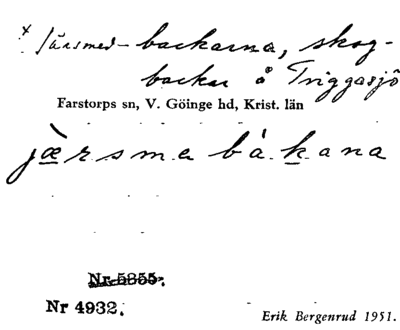 × Järsmed-backarna, skog-
backar å Triggasjö
Farstorps sn, V. Göinge hd, Krist. län
jæ̀rsmabàkana
Nr 5855.
Nr 4932.
Erik Bergenrud 1951.